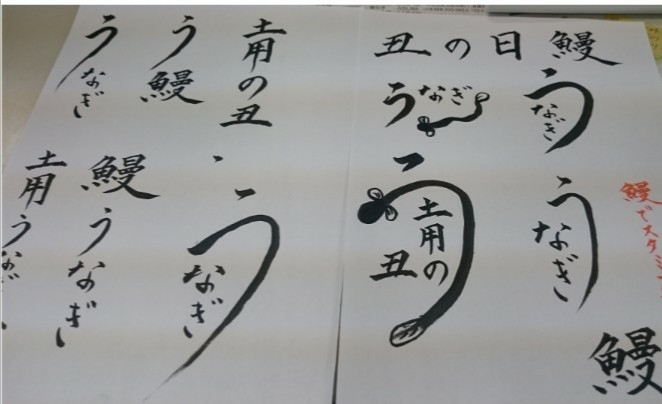 丑の日 鰻
うなぎ
うなぎ
う
土用の
丑
うなぎ
鰻でスタミ
鰻
土用の丑
う鰻
うなぎ
うなぎ
鰻うなぎ
土用うなぎ